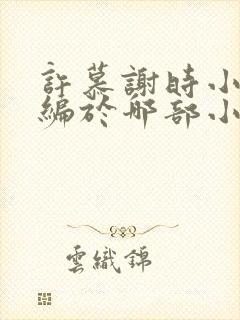 許慕謝時小
編於那部小
雲織錦